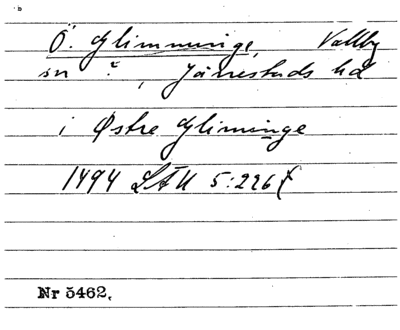 Ö. Glimminge, Vallby
sn ?, Järrestads hd
i Østre Gliminge
1494 LÄU 5:226 f
Nr 5462.